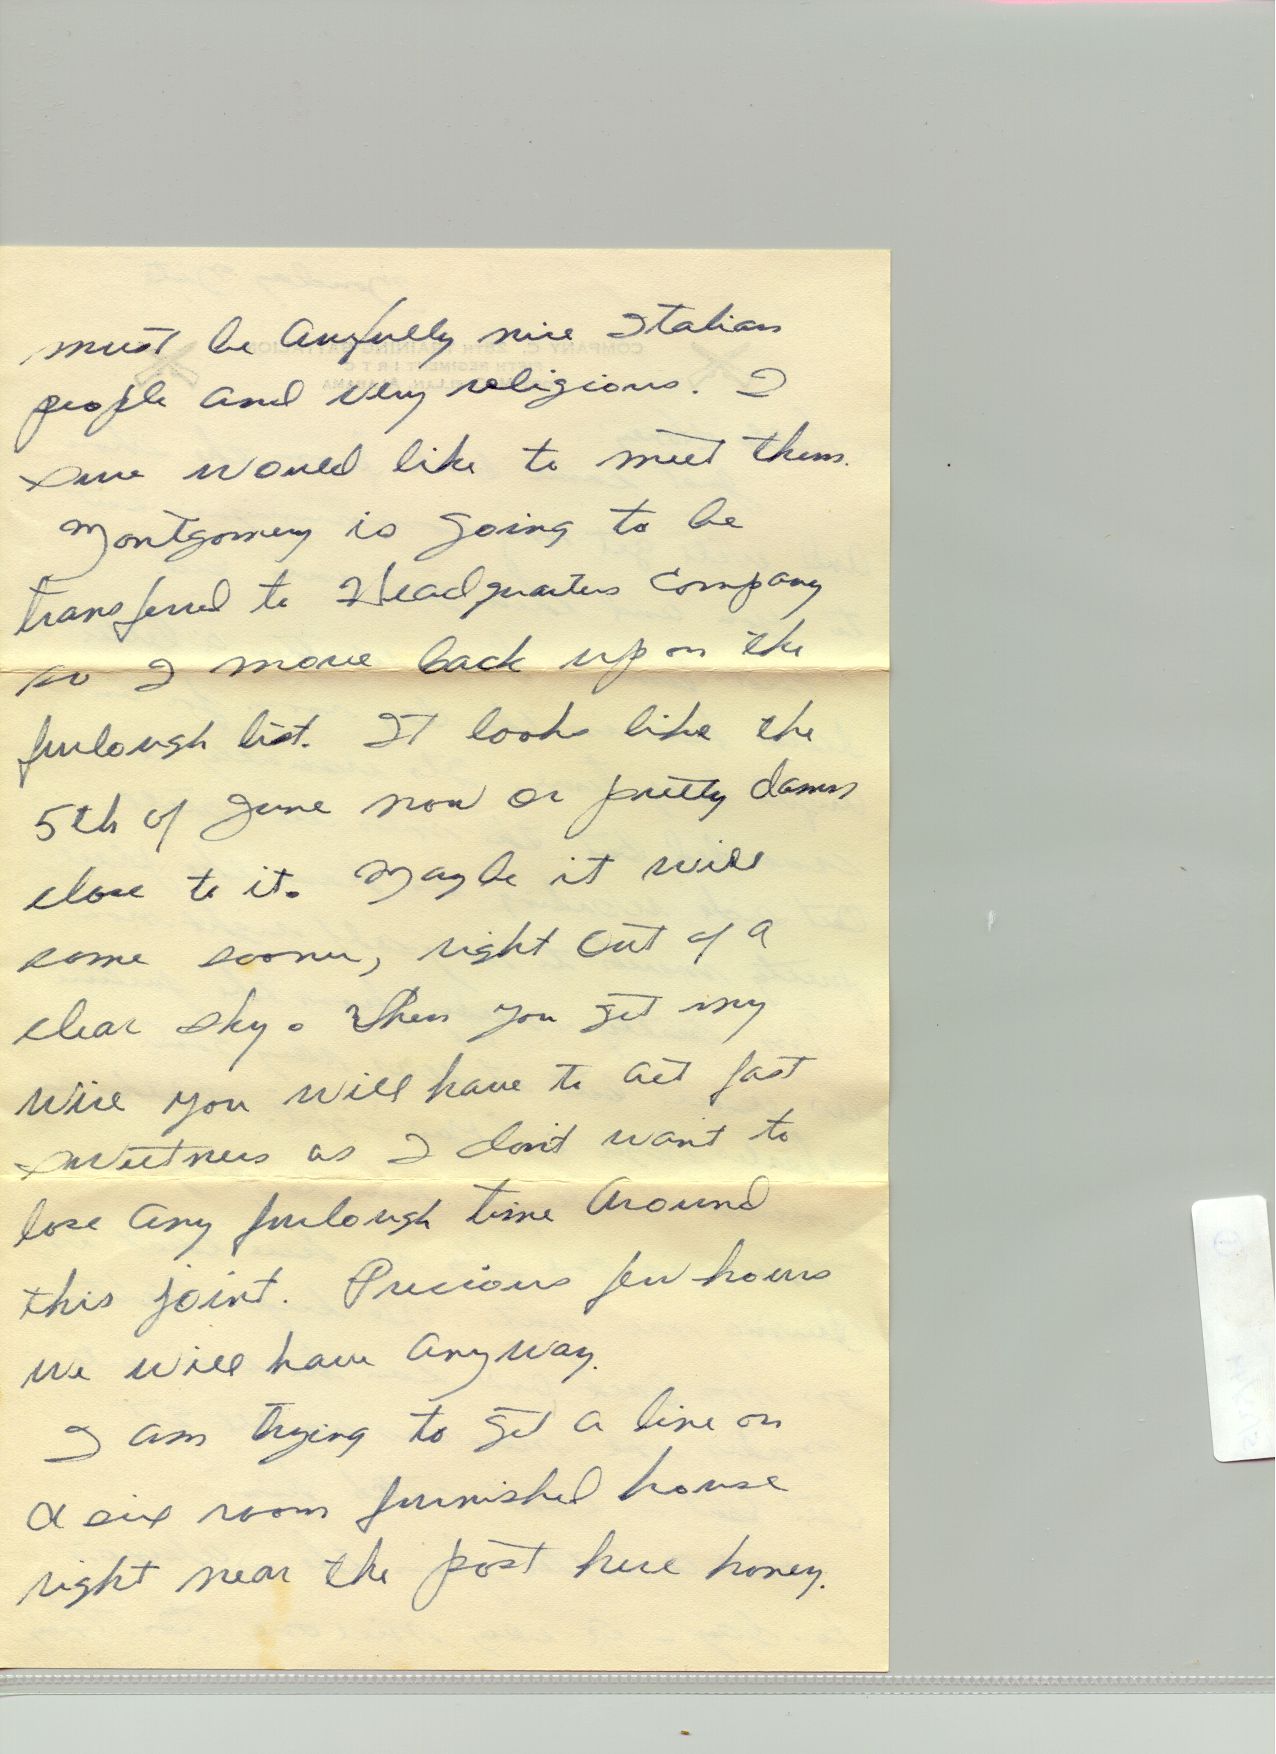 must be awfully nice Italian
people and very religious. I
sure would like to meet them.
Montgomery is going to be
transferred to Headquarters Company
so I move back up on the
furlough list. It looks like the
5th of June now or pretty damn
close to it. Maybe it will
come sooner, right out of a
clear sky. When you get my
wire you will have to act fast
sweetness as I don't want to
lose any furlough time around
this joint. Precious few hours
we will have anyway.
I am trying to get a line on
a six room furnished house
right near the post here honey.